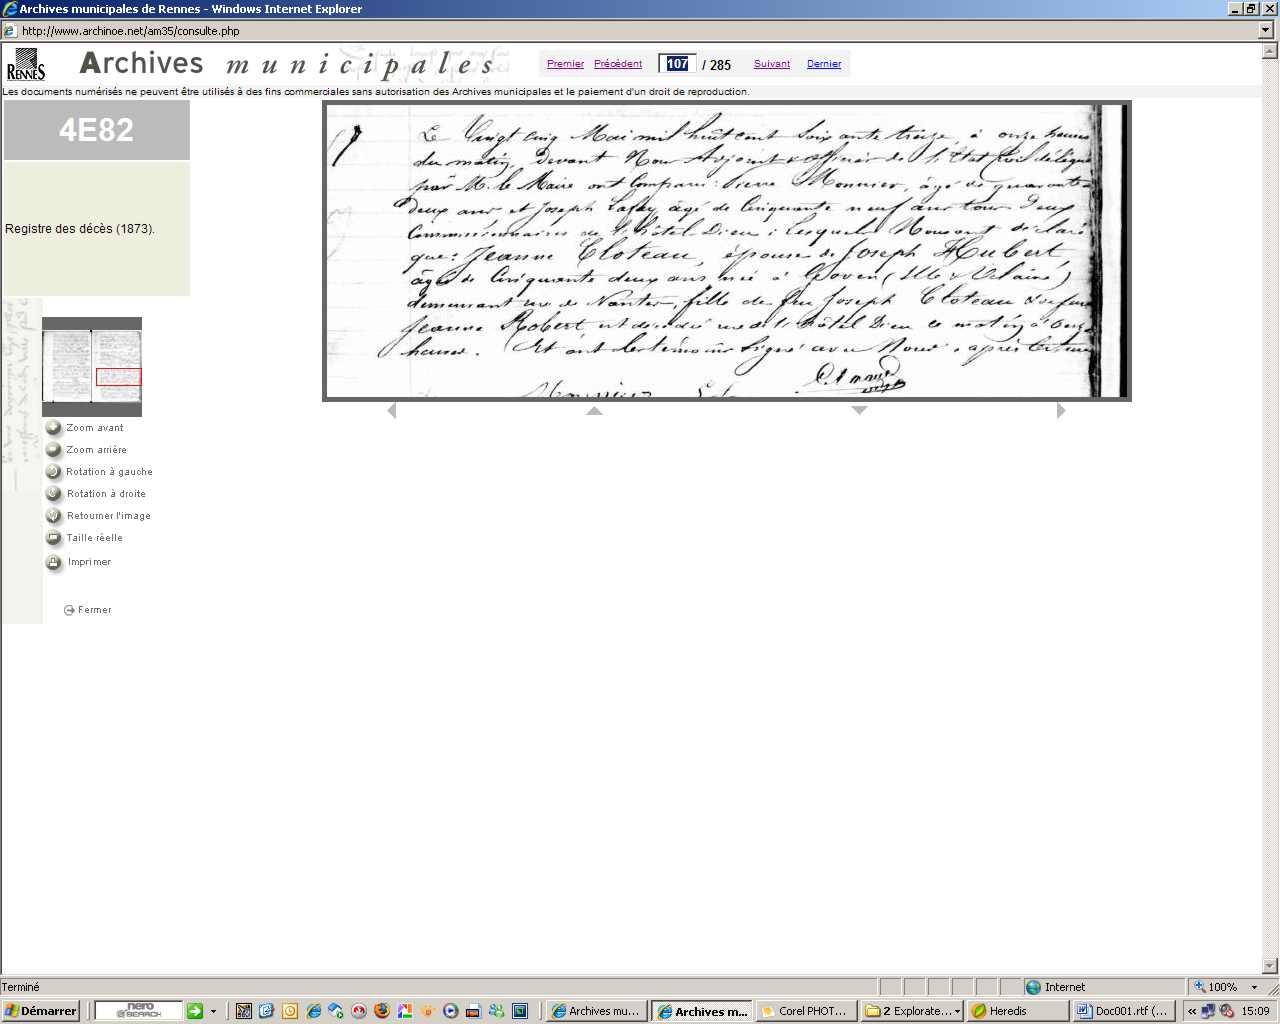 Archives municipales de Rennes - Windows Internet Explorer
http://www.archinoe.net/am35/consulte.php
RENNES
Archives municipales
Premier Précédent 107 / 285 Suivant Dernier
Les documents numérisés ne peuvent être utilisés à des fins commerciales sans autorisation des Archives municipales et le paiement d'un droit de reproduction.
4E82
Registre des décès (1873).
Le Vingt cinq Mai mil huit cent soixante treize, à onze heures
du matin, Devant Nous Adjoint & officier de l'Etat Civil délégué
par M. le Maire ont comparu: Pierre Monnier, âgé de quarante
deux ans et Joseph Lafay âgé de Cinquante neuf ans tous deux
Commissionnaires de l'hôtel-Dieu; Lesquels Nous ont déclaré
que: Jeanne Cloteau, épouse de Joseph Hubert,
âgée de Cinquante deux ans née à Goven (Ille & Vilaine)
demeurant rue de Nantes, fille de feu Joseph Cloteau & de feue
Jeanne Robert est décédée rue de l'hôtel Dieu ce matin à onze
heures. Et ont les témoins signé avec Nous, après lecture
Monnier
Zoom avant
Zoom arrière
Rotation à gauche
Rotation à droite
Retourner l'image
Taille réelle
Imprimer
Fermer
Terminé Internet 100%
Démarrer nero SEARCH Archives mu... Archives m... Corel PHOT... 2 Explorate... Heredis Doc001.rtf (... « 15:09